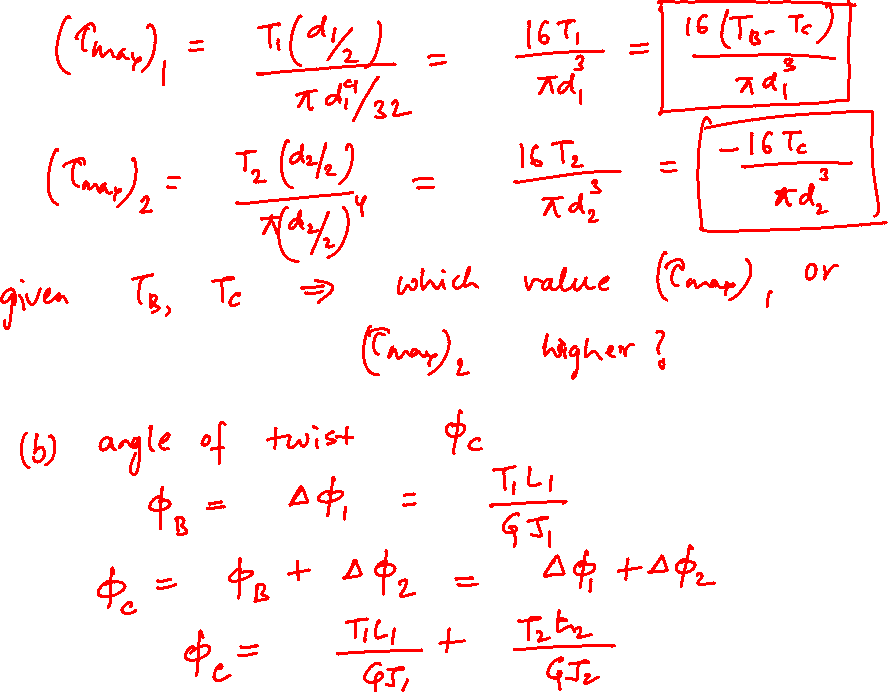 (τmax)₁ = T₁(d₁/2) / πd₁⁴/32 = 16T₁ / πd₁³ = 16(T_B - T_C) / πd₁³
(τmax)₂ = T₂(d₂/2) / π(d₂/2)⁴ = 16T₂ / πd₂³ = -16T_C / πd₂³
given T_B, T_C ⇒ which value (τmax)₁ or
(τmax)₂ higher?
(b) angle of twist ϕ_C
ϕ_B = Δϕ₁ = T₁L₁ / GJ₁
ϕ_C = ϕ_B + Δϕ₂ = Δϕ₁ + Δϕ₂
ϕ_C = T₁L₁ / GJ₁ + T₂L₂ / GJ₂